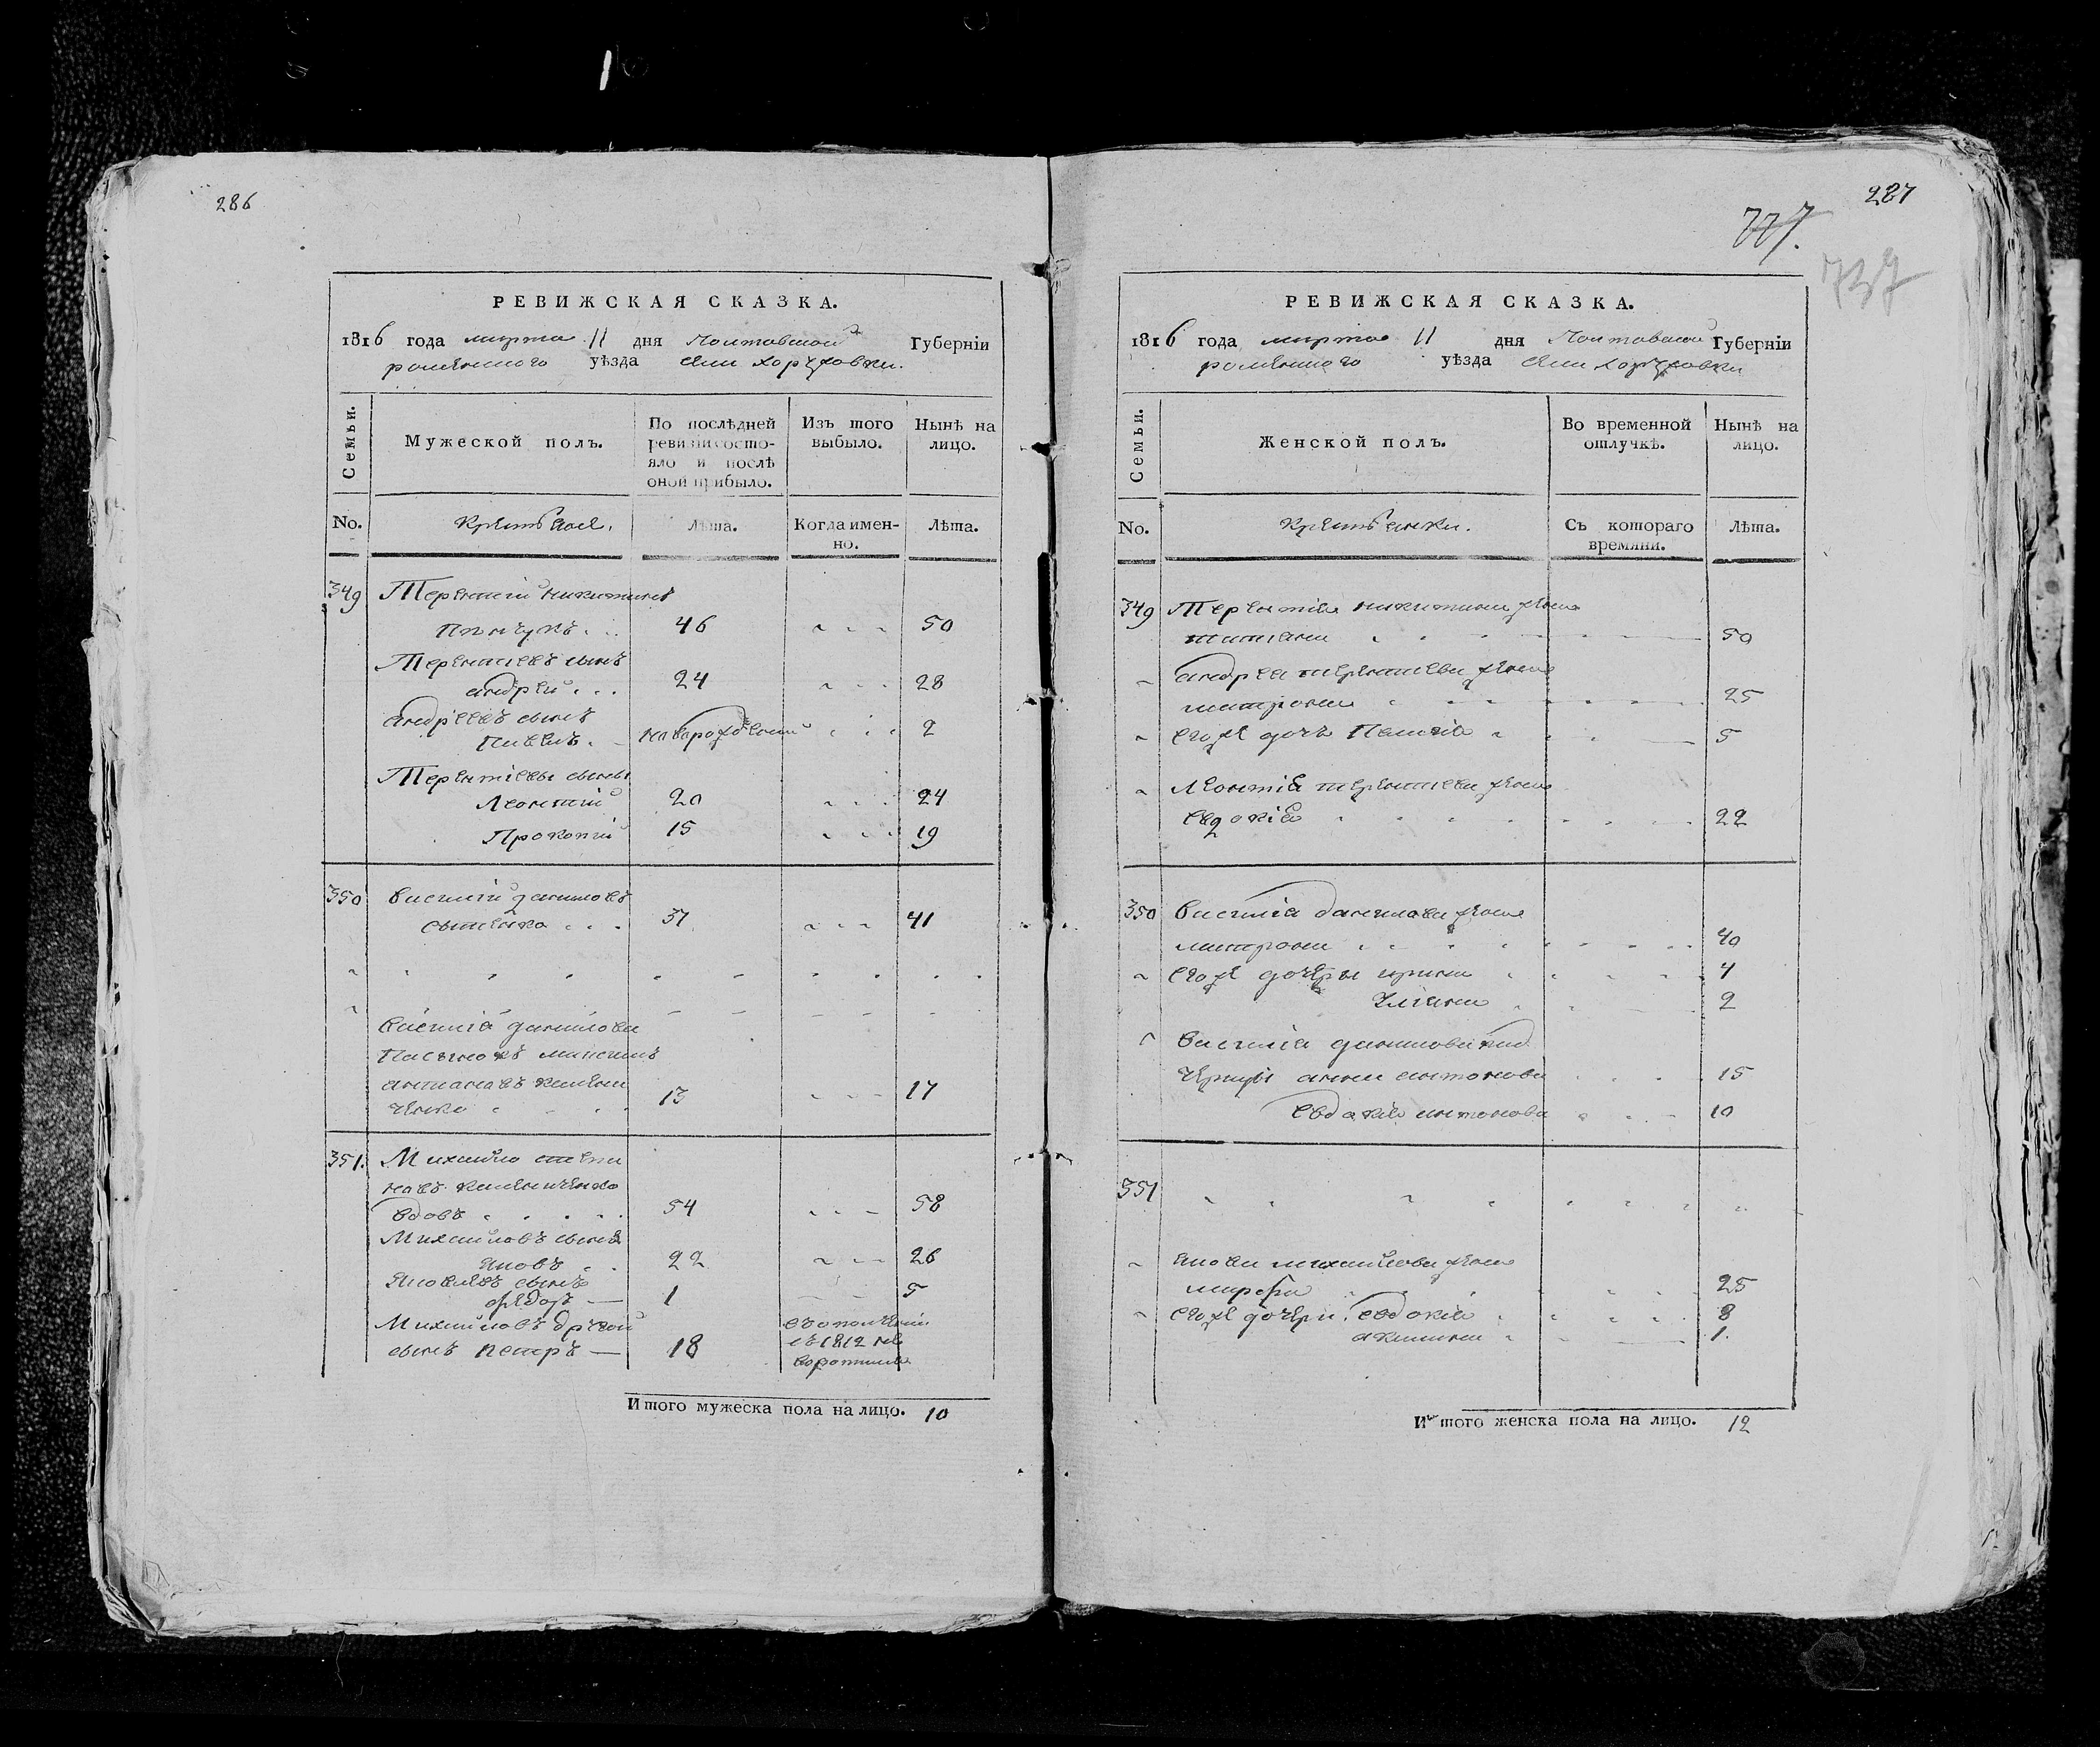 286
РЕВИЖСКАЯ СКАЗКА.
1816 года марта 11 дня Полтавской Губерніи
роменского уѣзда села хоружовки.
Семьи.
Мужеской полъ.
По послѣдней ревизіи состояло и послѣ оной прибыло.
Изъ того выбыло.
Нынѣ на лицо.
No.
Крестьяне.
Лѣта.
Когда именно.
Лѣта.
349 Терентий никитинъ
46 50
Терентиевъ сынъ
андрей 24 28
андреевъ сынъ
Павелъ новорожденный 2
Терентіевы сыны
Леонтий 20 24
Прокопий 15 19
350 василий даниловъ
37 41
василіа данилова
пасынокъ
13 17
351. Михайло
вдовъ 54 58
Михайловъ сынъ
яковъ 22 26
яковлевъ сынъ
федор 1 5
Михайловъ другой
сынъ петръ 18
съ 1812 не
Итого мужеска пола на лицо. 10
287
777.
737
РЕВИЖСКАЯ СКАЗКА.
1816 года марта 11 дня Полтавской Губерніи
роменского уѣзда села хоружовки
Семьи.
Женской полъ.
Во временной отлучкѣ.
Нынѣ на лицо.
No.
Крестьянки.
Съ котораго времяни.
Лѣта.
349 Терентіа никитина жена
татиана 50
андреа терентиева жена
матрона 25
егоже дочь Пелагіа 5
Леонтіа терентиева жена
евдокіа 22
350 василіа данилова жена
матрона 40
егоже дочеры ирина 4
2
василіа данилова пад
черицы анна антонова 15
евдокіа антонова 10
351
якова михайлова жена
марфа 25
егоже дочери, евдокіа 8
акилина 1.
Итого женска пола на лицо. 12